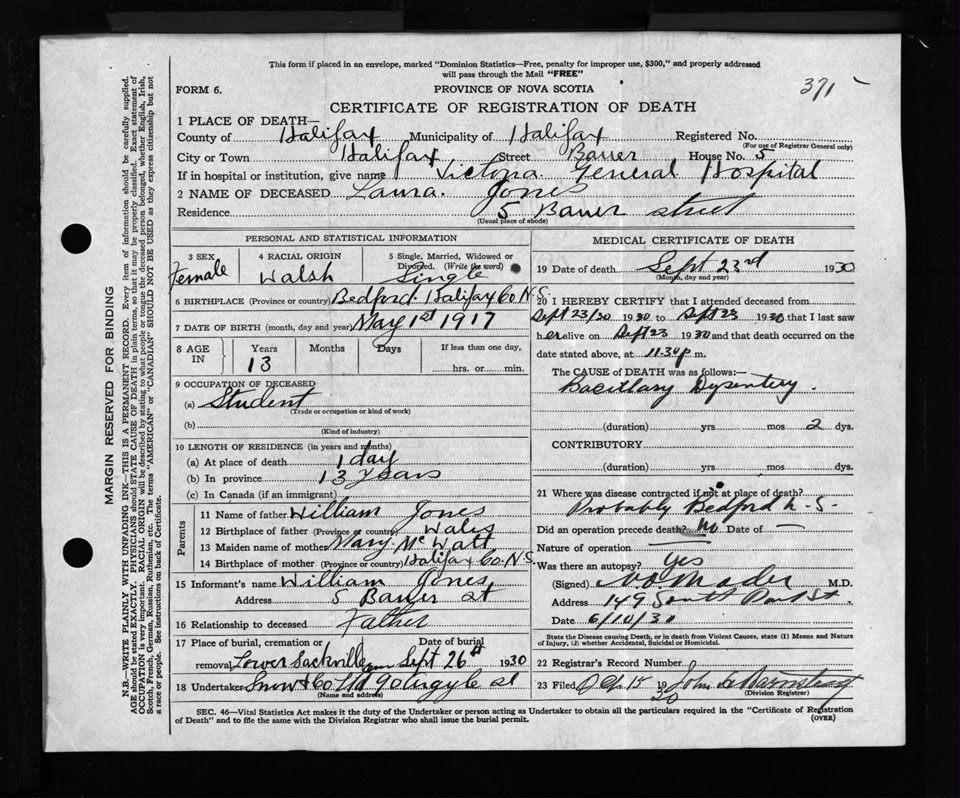 This form if placed in an envelope, marked "Dominion Statistics—Free, penalty for improper use, $300," and properly addressed
will pass through the Mail "FREE"
371
FORM 6.
PROVINCE OF NOVA SCOTIA
CERTIFICATE OF REGISTRATION OF DEATH
1 PLACE OF DEATH—
County of Halifax Municipality of Halifax Registered No.
(For use of Registrar General only)
City or Town Halifax Street Bauer House No. 5
If in hospital or institution, give name Victoria General Hospital
2 NAME OF DECEASED Laura. Jones
Residence 5 Bauer street
(Usual place of abode)
PERSONAL AND STATISTICAL INFORMATION
3 SEX Female
4 RACIAL ORIGIN Walsh
5 Single, Married, Widowed or Divorced. (Write the word) Single
6 BIRTHPLACE (Province or country) Bedford. Halifax Co N.S.
7 DATE OF BIRTH (month, day and year) May 1st 1917
8 AGE IN Years Months Days If less than one day,
13 hrs. or min.
9 OCCUPATION OF DECEASED
(a) Student
(Trade or occupation or kind of work)
(b)
(Kind of industry)
10 LENGTH OF RESIDENCE (in years and months)
(a) At place of death 1 day
(b) In province 13 years
(c) In Canada (if an immigrant)
Parents
11 Name of father William Jones
12 Birthplace of father (Province or country) Wales
13 Maiden name of mother Mary McWatt
14 Birthplace of mother (Province or country) Halifax Co. N.S.
15 Informant's name William Jones,
Address 5 Bauer st
16 Relationship to deceased Father
17 Place of burial, cremation or Date of burial
removal Lower Sackville Sept 26th 1930
18 Undertaker Snow & Co Ltd 90 Argyle st
(Name and address)
MEDICAL CERTIFICATE OF DEATH
19 Date of death Sept 23rd 1930
(Month, day and year)
20 I HEREBY CERTIFY that I attended deceased from
Sept 23/30 1930 to Sept 23 1930 that I last saw
her alive on Sept 23 1930 and that death occurred on the
date stated above, at 11.30 p m.
The CAUSE OF DEATH was as follows:—
Bacillary Dysentery.
(duration) yrs mos 2 dys.
CONTRIBUTORY
(duration) yrs mos dys.
21 Where was disease contracted if not at place of death?
Probably Bedford N.S.
Did an operation precede death? No Date of —
Nature of operation
Was there an autopsy? Yes
(Signed) V.O. Mader M.D.
Address 149 South Park St.
Date 6/10/30
State the Disease causing Death, or in death from Violent Causes, state (1) Means and Nature
of Injury, (2) whether Accidental, Suicidal or Homicidal.
22 Registrar's Record Number
23 Filed 15 19 John
(Division Registrar)
SEC. 46—Vital Statistics Act makes it the duty of the Undertaker or person acting as Undertaker to obtain all the particulars required in the "Certificate of Registration
of Death" and to file the same with the Division Registrar who shall issue the burial permit.
(OVER)
MARGIN RESERVED FOR BINDING
N.B.—WRITE PLAINLY WITH UNFADING INK—THIS IS A PERMANENT RECORD. Every item of information should be carefully supplied.
AGE should be stated EXACTLY. PHYSICIANS should STATE CAUSE OF DEATH in plain terms, so that it may be properly classified. Exact statement of
OCCUPATION is very important. RACIAL ORIGIN will be described by stating to what people or tongue the deceased person belonged, whether English, Irish,
Scotch, French, German, Russian, Ruthenian, etc. The terms "AMERICAN" or "CANADIAN" SHOULD NOT BE USED as they express citizenship but not
a race or people. See instructions on back of Certificate.